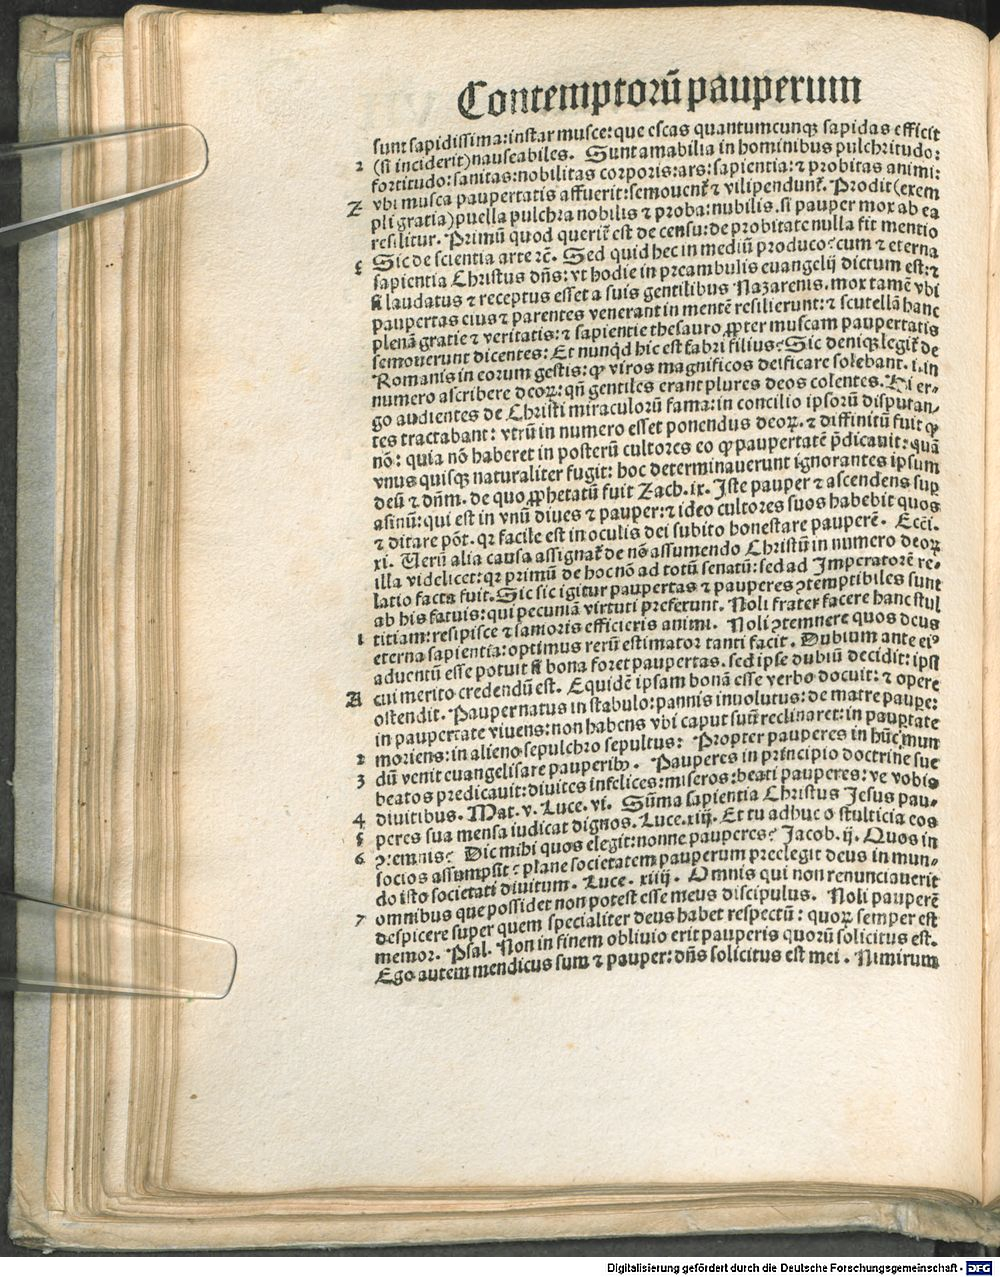 Contemptorū pauperum
sunt sapidissima: instar musce: que escas quantumcunqȝ sapidas efficit
(si inciderit) nauseabiles. Sunt amabilia in hominibus pulchritudo:
2 fortitudo: sanitas: nobilitas corporis: ars: sapientia: ⁊ probitas animi:
vbi musca paupertatis affuerit: semouent̃ ⁊ vilipendunt̃. Prodit (exem
Z pli gratia) puella pulchra nobilis ⁊ proba: nubilis. si pauper mox ab ea
resilitur. Primū quod querit̃ est de censu: de probitate nulla fit mentio
Sic de scientia arte ⁊c̄. Sed quid hec in mediū produco? cum ⁊ eterna
ς sapientia Christus dn̄s: vt hodie in preambulis euangelij dictum est: ⁊
si laudatus ⁊ receptus esset a suis gentilibus Nazarenis. mox tamē vbi
paupertas eius ⁊ parentes venerant in mentē resilierunt: ⁊ scutellā hanc
plenā gratie ⁊ veritatis: ⁊ sapientie thesauro ꝓpter muscam paupertatis
semouerunt dicentes: Et nunqͥd hic est fabri filius? Sic deniqȝ legit̃ de
Romanis in eorum gestis: ꝙ viros magnificos deificare solebant. i. in
numero ascribere deoꝝ: qn̄ gentiles erant plures deos colentes. Hi er-
go audientes de Christi miraculorū fama: in concilio ipsorū disputan-
tes tractabant: vtrū in numero esset ponendus deoꝝ. ⁊ diffinitū fuit ꝙ
nō: quia nō haberet in posterū cultores eo ꝙ paupertatē p̄dicauit: quā
vnus quisqȝ naturaliter fugit: hoc determinauerunt ignorantes ipsum
deū ⁊ dn̄m. de quo ꝓphetatū fuit Zach. ix. Iste pauper ⁊ ascendens suꝑ
asinū: qui est in vnū diues ⁊ pauper: ⁊ ideo cultores suos habebit quos
⁊ ditare pōt. qꝛ facile est in oculis dei subito honestare pauperē. Eccī.
xi. Verū alia causa assignat̃ de nō assumendo Christū in numero deoꝝ
illa videlicet: qꝛ primū de hoc nō ad totū senatū: sed ad Imperatorē re-
latio facta fuit. Sic sic igitur paupertas ⁊ pauperes ꝯtemptibiles sunt
ab his fatuis: qui pecuniā virtuti preferunt. Noli frater facere hanc stul
1 titiam: resipisce ⁊ sanioris efficieris animi. Noli ꝯtemnere quos deus
eterna sapientia: optimus rerū estimator tanti facit. Dubium ante eiꝰ
aduentū esse potuit si bona foret paupertas. sed ipse dubiū decidit: ipsi
A cui merito credendū est. Equidē ipsam bonā esse verbo docuit: ⁊ opere
ostendit. Pauper natus in stabulo: pannis inuolutus: de matre paupe:
in paupertate viuens: non habens vbi caput suū reclinaret: in pauꝑtate
moriens: in alieno sepulchro sepultus: Propter pauperes in hūc mun
2 dū venit euangelisare pauperibꝰ. Pauperes in principio doctrine sue
3 beatos predicauit: diuites infelices: miseros: beati pauperes: ve vobis
diuitibus. Mat. v. Luce. vi. Sūma sapientia Christus Jesus pau-
4 peres sua mensa iudicat dignos. Luce. xiij. Et tu adhuc o stulticia eos
5 ꝯtemnis? Dic mihi quos elegit: nonne pauperes? Jacob. ij. Quos in
6 socios assumpsit? plane societatem pauperum preelegit deus in mun-
do isto societati diuitum. Luce. xiiij. Omnis qui non renunciauerit
omnibus que possidet non potest esse meus discipulus. Noli pauperē
7 despicere super quem specialiter deus habet respectū: quoꝝ semper est
memor. Psal. Non in finem obliuio erit pauperis quorū solicitus est.
Ego autem mendicus sum ⁊ pauper: dn̄s solicitus est mei. Nimirum
Digitalisierung gefördert durch die Deutsche Forschungsgemeinschaft - DFG